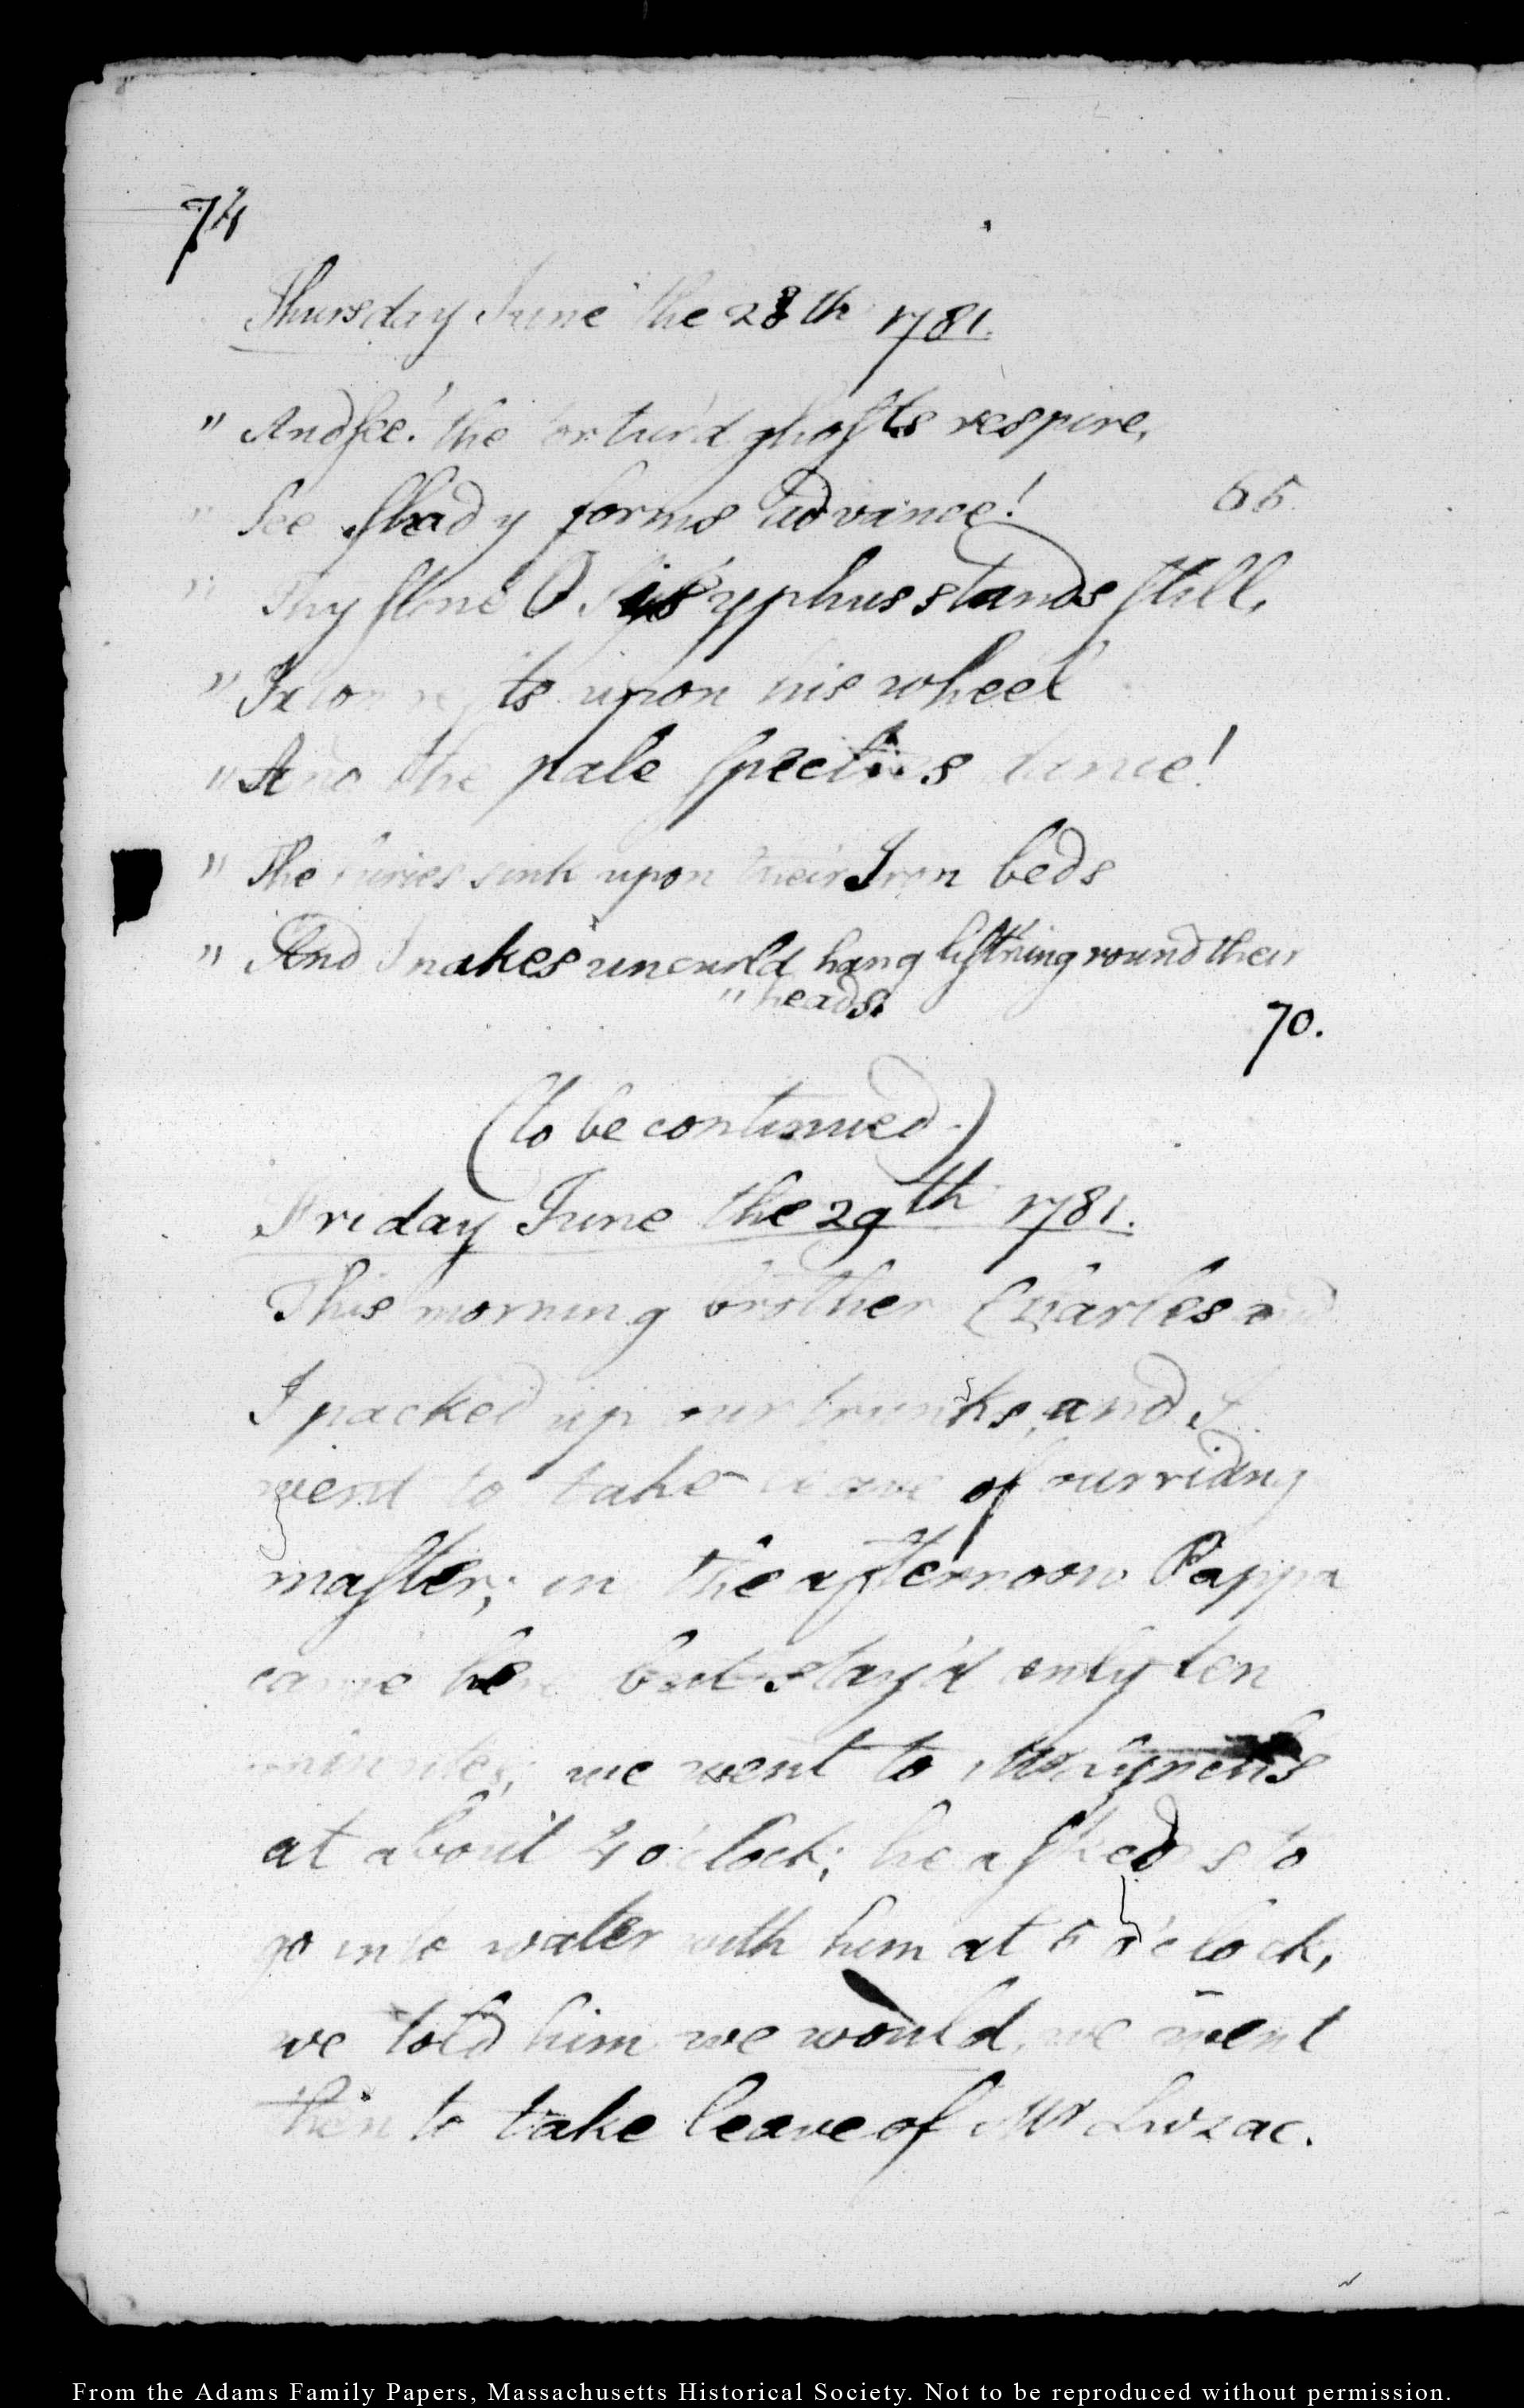 74
Thursday June the 28th 1781.
" And see! the tortur'd ghosts respire,
" See shady forms advance! 65.
" Thy stone O Sisyphus stands still,
" Ixion rests upon his wheel
" And the pale spectres dance!
" The furies sink upon their Iron beds
" And Snakes uncurld hang list'ning round their
" heads.
70.
(to be continued.)
Friday June the 29th 1781.
This morning brother Charles and
I packed up our trunks, and I
went to take leave of our riding
master; in the afternoon Pappa
came here but stay'd only ten
minutes, we went to Mr Lynch's
at about 4 o'clock; he asked us to
go into water with him at 5 o'clock,
we told him we would, we went
then to take leave of Mr Luzac.
From the Adams Family Papers, Massachusetts Historical Society. Not to be reproduced without permission.